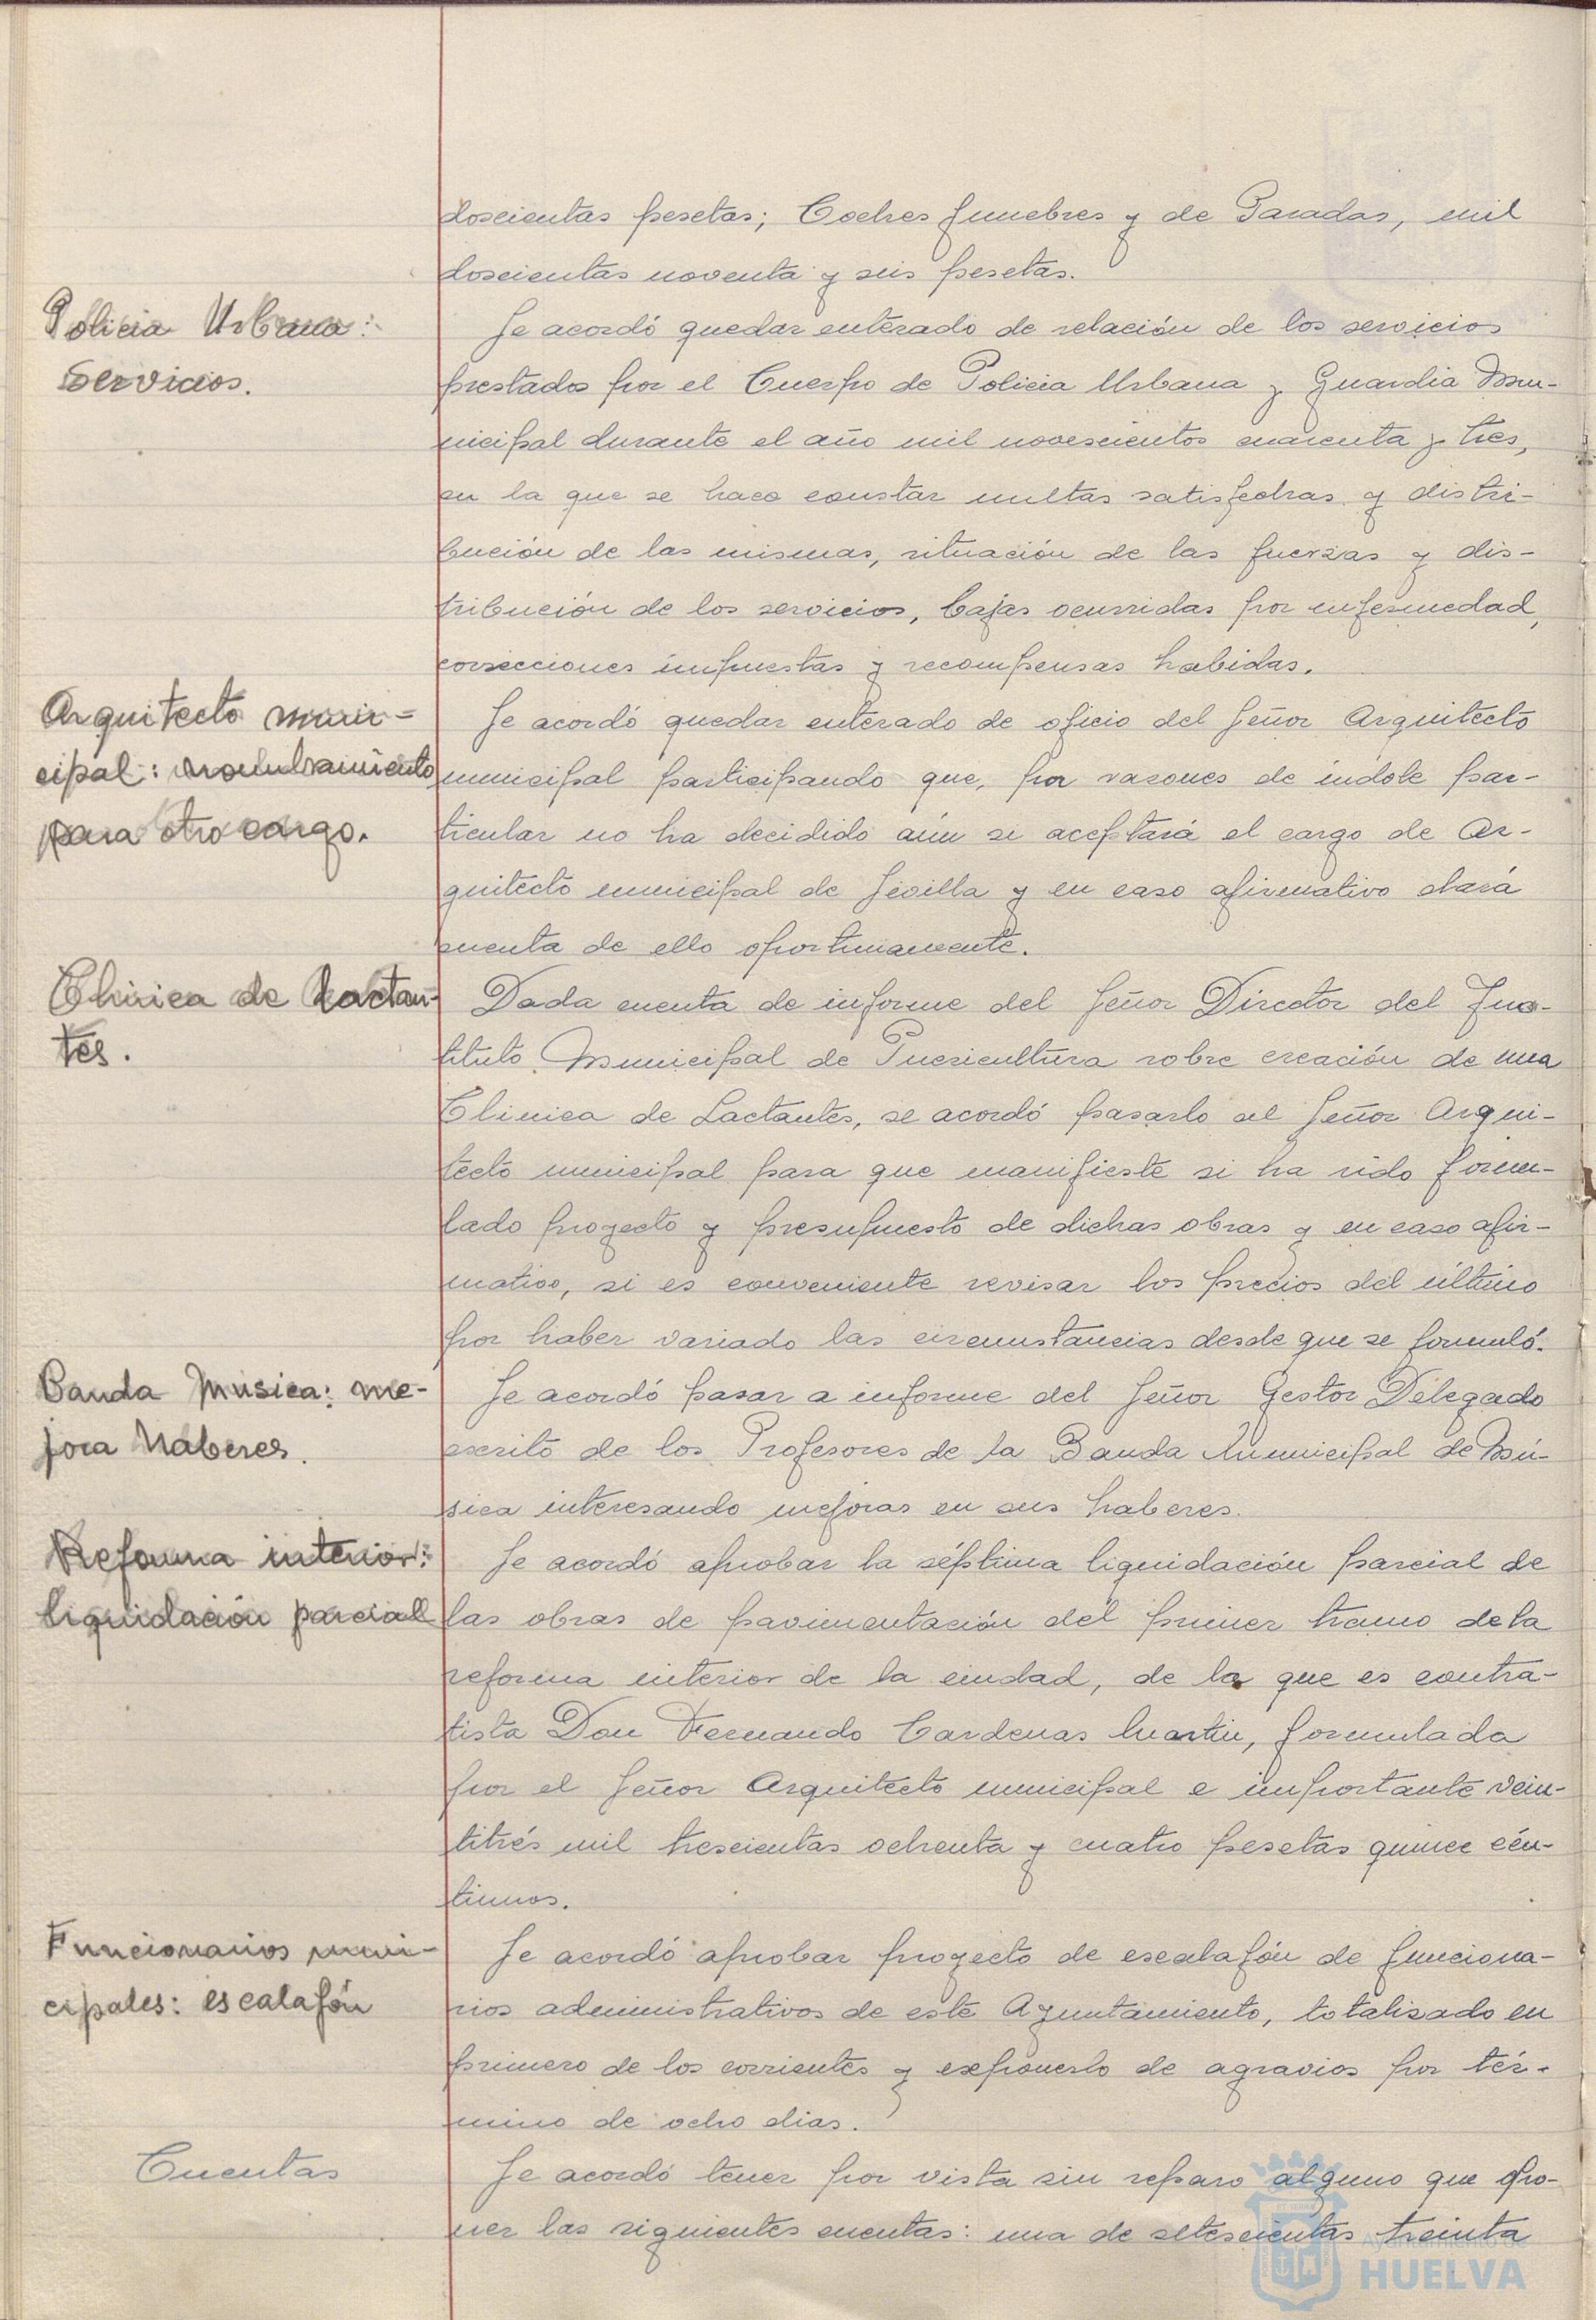 doscientas pesetas; Coches funebres y de Paradas, mil
doscientas noventa y seis pesetas.
Policia Urbana:
servicios.
Se acordó quedar enterado de relación de los servicios
prestados por el Cuerpo de Policia Urbana y Guardia Mu-
nicipal durante el año mil novescientos cuarenta y tres,
en la que se hace constar multas satisfechas y distri-
bución de las mismas, situación de las fuerzas y dis-
tribución de los servicios, bajas ocurridas por enfermedad,
correcciones impuestas y recompensas habidas.
Arquitecto muni-
cipal: nombramiento
para otro cargo.
Se acordó quedar enterado de oficio del Señor Arquitecto
municipal participando que, por razones de indole par-
ticular no ha decidido aún si aceptará el cargo de Ar-
quitecto municipal de Sevilla y en caso afirmativo dará
cuenta de ello oportunamente.
Clinica de Lactan-
tes.
Dada cuenta de informe del Señor Director del Ins-
tituto Municipal de Puericultura sobre creación de una
Clinica de Lactantes, se acordó pasarlo al Señor Arqui-
tecto municipal para que manifieste si ha sido formu-
lado proyecto y presupuesto de dichas obras y en caso afir-
mativo, si es conveniente revisar los precios del último
por haber variado las circunstancias desde que se formuló.
Banda Música: me-
jora haberes.
Se acordó pasar a informe del Señor Gestor Delegado
escrito de los Profesores de la Banda Municipal de Mú-
sica interesando mejoras en sus haberes.
Reforma interior:
liquidación parcial
Se acordó aprobar la séptima liquidación parcial de
las obras de pavimentación del primer tramo de la
reforma interior de la ciudad, de la que es contra-
tista Don Fernando Cardenas Martin, formulada
por el Señor Arquitecto municipal e importante vein-
titrés mil trescientas ochenta y cuatro pesetas quince cén-
timos.
Funcionarios muni-
cipales: escalafón
Se acordó aprobar proyecto de escalafón de funciona-
rios administrativos de este Ayuntamiento, totalizado en
primero de los corrientes y exponerlo de agravios por tér-
mino de ocho dias.
Cuentas
Se acordó tener por vista sin reparo alguno que opo-
ner las siguientes cuentas: una de setescientas treinta
Ayuntamiento de
HUELVA